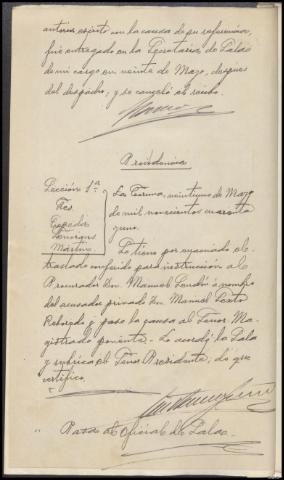 anterior escrito con la causa de su referencia,
fue entregado en la Secretaria de Sala
de mi cargo en veinte de Mayo, despues
del despacho; y se canceló el recibo.
Providencia
Sección 1ª
Fes
Martin.
La Coruna, veintiuno de Mayo
de mil novecientos cuarenta
y uno.
Se tiene por evacuado el
traslado conferido para instrucción al
Procurador Don Manuel en nombre
del acusador privado Don Manuel Souto
Reboredo y pase la causa al Señor Ma-
gistrado ponente. Lo acordó la Sala
y rubrica el Señor Presidente, de que
certifico.
Pasa al Oficial de Sala.